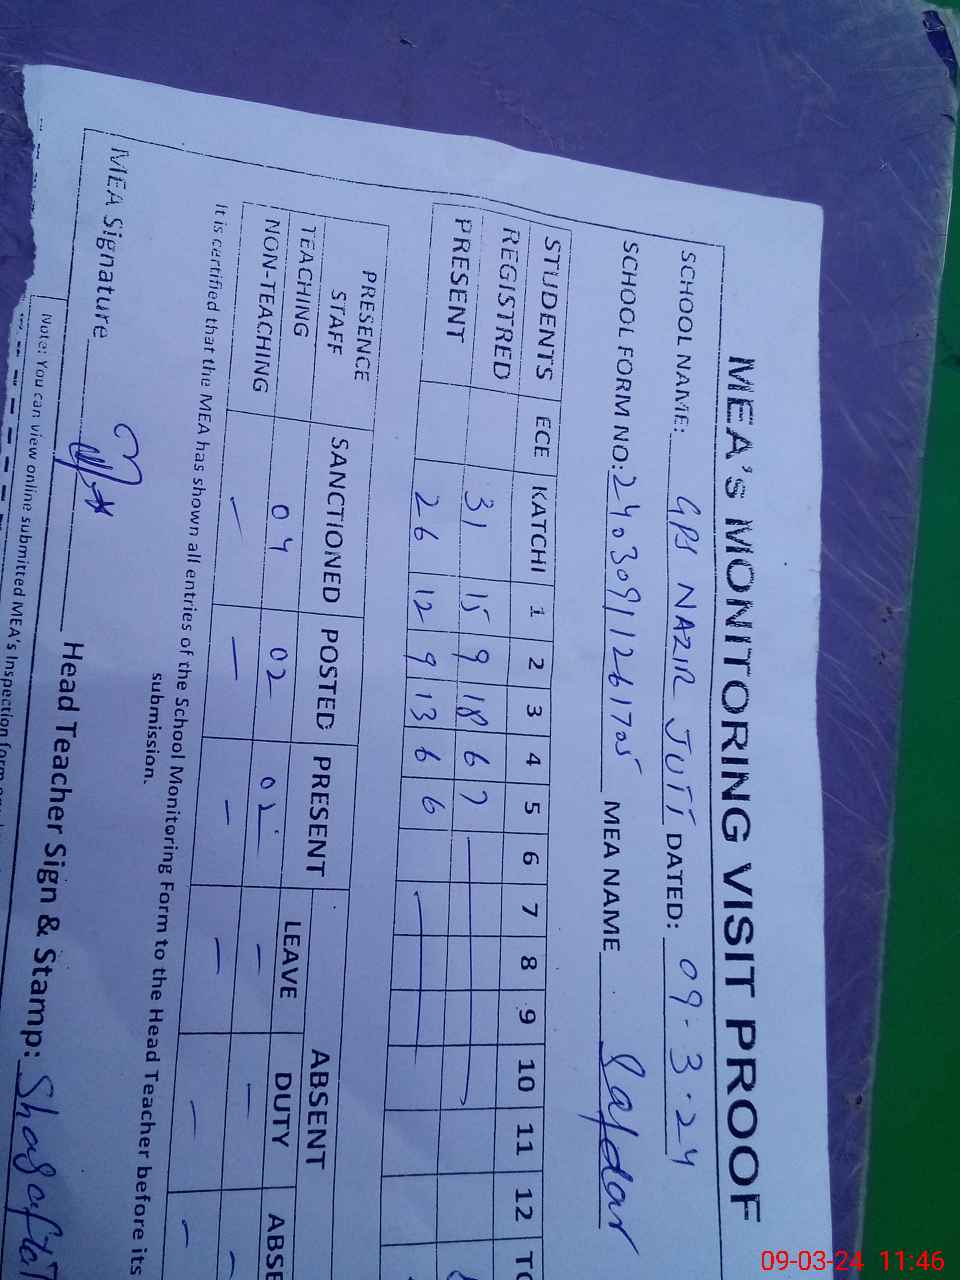 MEA's MONITORING VISIT PROOF
SCHOOL NAME: GPS NAZIR JUTT DATED: 09-3-24
SCHOOL FORM NO: 2403091126 1705 MEA NAME Safdar
STUDENTS ECE KATCHI 1 2 3 4 5 6 7 8 9 10 11 12
REGISTRED 31 15 9 18 6 7
PRESENT 26 12 9 13 6 6
PRESENCE STAFF SANCTIONED POSTED PRESENT ABSENT
LEAVE DUTY
TEACHING 04 02 02 — —
NON-TEACHING — — — — — —
It is certified that the MEA has shown all entries of the School Monitoring Form to the Head Teacher before its
submission.
MEA Signature Head Teacher Sign & Stamp:
Note: You can view online submitted MEA's Inspection form
09-03-24 11:46